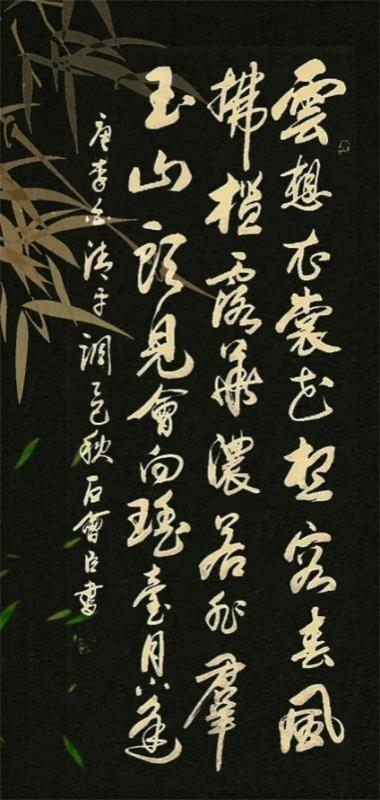 雲想衣裳花想容春風
拂檻露華濃若非羣
玉山頭見會向瑤臺月下逢
唐李白清平調秋石會臣書